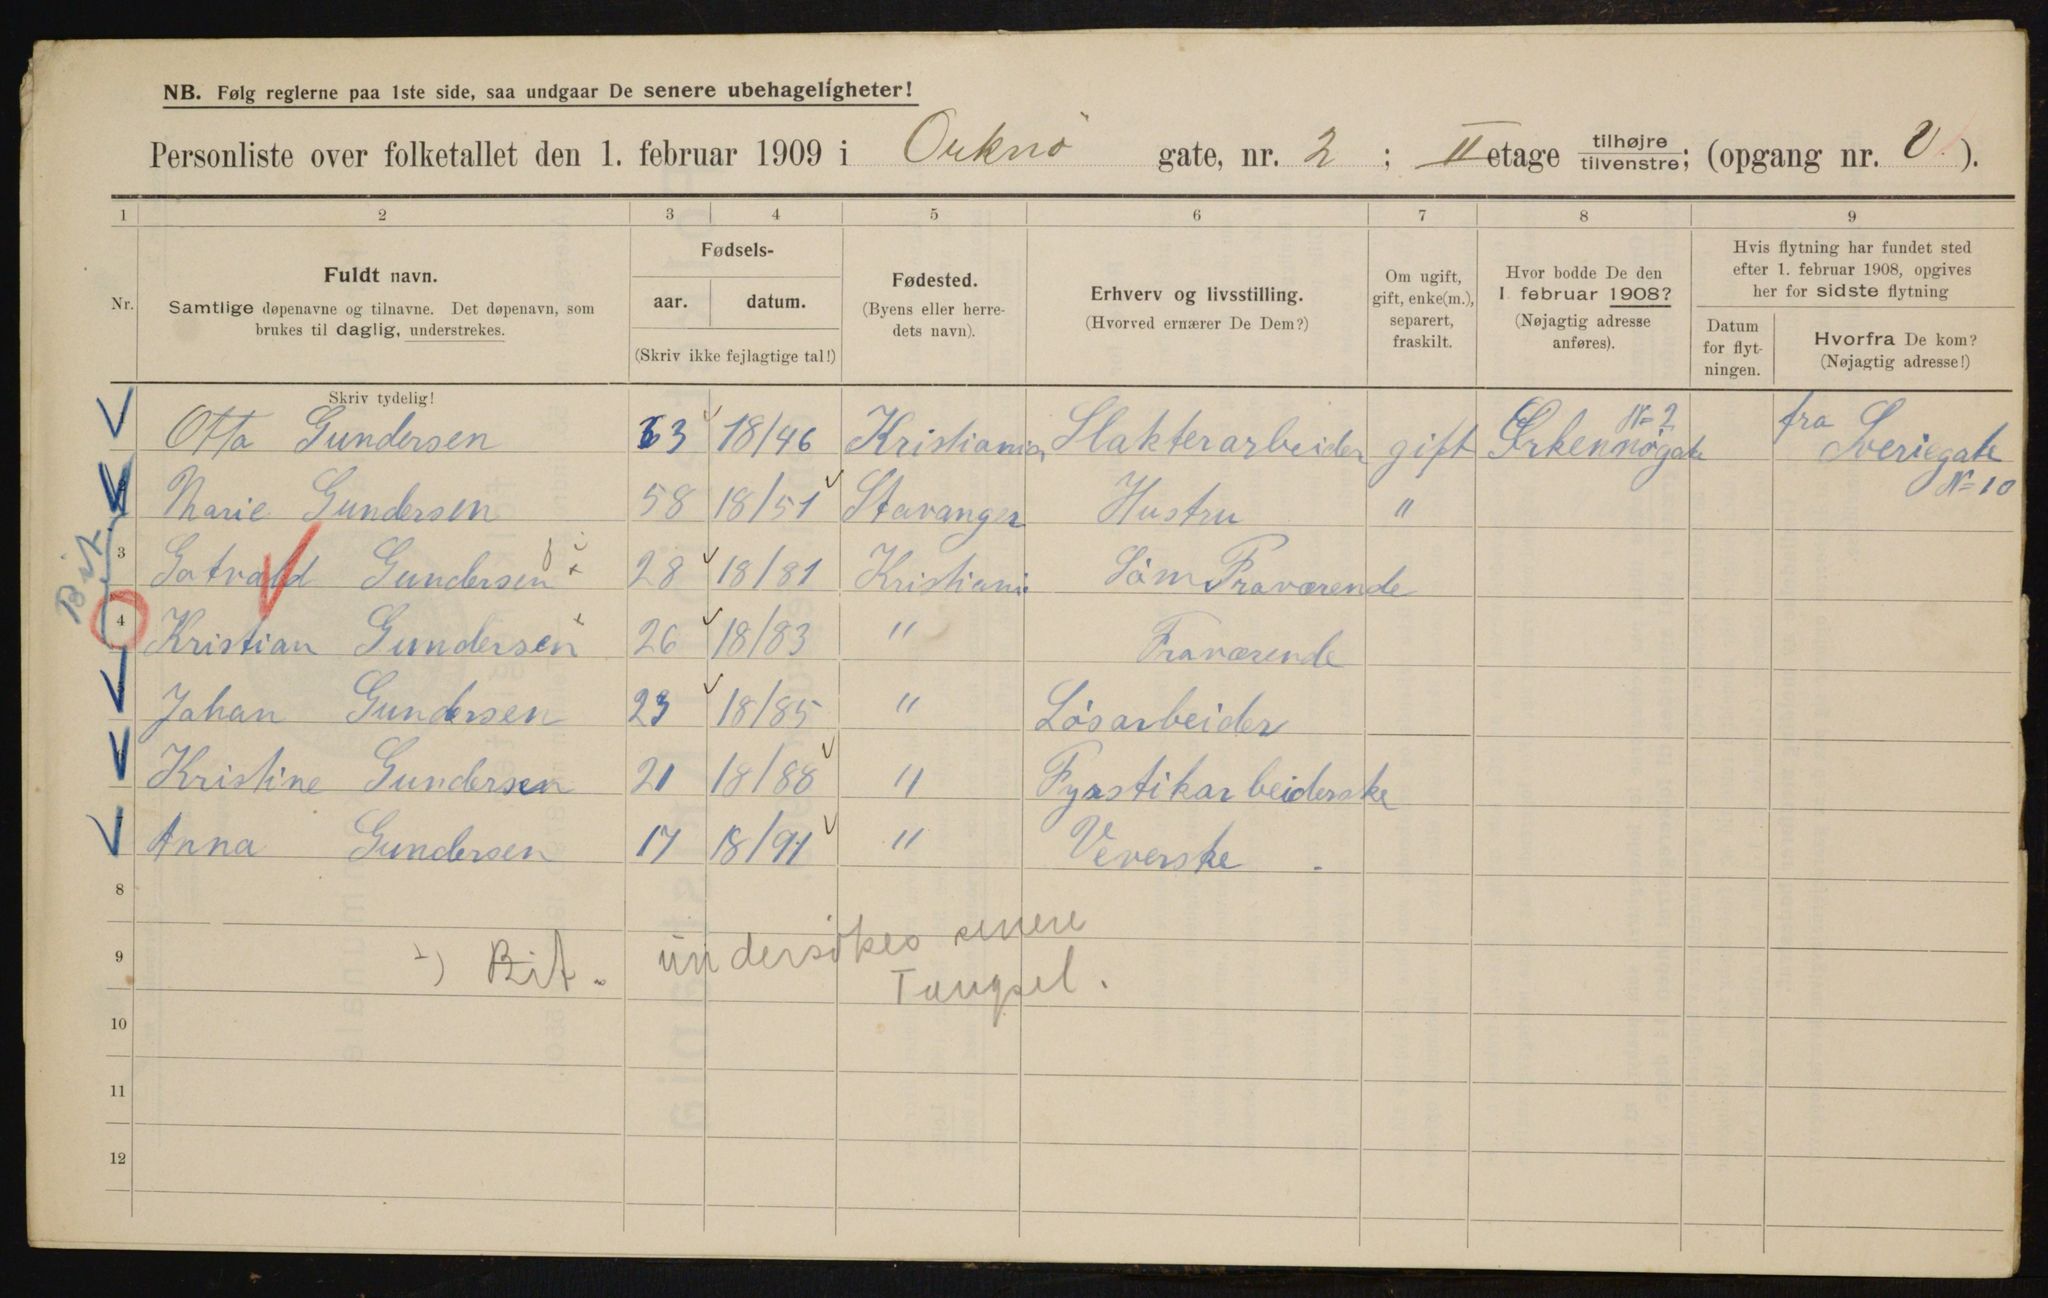 NB. Følg reglerne paa 1ste side, saa undgaar De senere ubehageligheter!
Personliste over folketallet den 1. februar 1909 i Orknø gate, nr. 2 ; II etage tilhøjre tilvenstre; (opgang nr. ).
1 2 3 4 5 6 7 8 9
Nr.
Fuldt navn.
Samtlige døpenavne og tilnavne. Det døpenavn, som
brukes til daglig, understrekes.
Fødsels-
aar. datum.
(Skriv ikke fejlagtige tal!)
Fødested.
(Byens eller herre-
dets navn).
Erhverv og livsstilling.
(Hvorved ernærer De Dem?)
Om ugift,
gift, enke(m.),
separert,
fraskilt.
Hvor bodde De den
1. februar 1908?
(Nøjagtig adresse
anføres).
Hvis flytning har fundet sted
efter 1. februar 1908, opgives
her for sidste flytning
Datum
for flyt-
ningen.
Hvorfra De kom?
(Nøjagtig adresse!)
Skriv tydelig!
Otto Gundersen 63 18/46 Kristiania Slakterarbeider gift Ørkennøgate No 2 fra Sveriegate
No 10
Marie Gundersen 58 18/51 Stavanger Hustru "
3 Gundersen 28 18/81 Kristiania Søm Fraværende
4 Kristian Gundersen 26 18/83 " Fraværende
Johan Gundersen 23 18/85 " Løsarbeider
Kristine Gundersen 21 18/88 " Fyrstikarbeiderske
Anna Gundersen 17 18/91 " Veverske
8
9 undersøkes senere
10
11
12